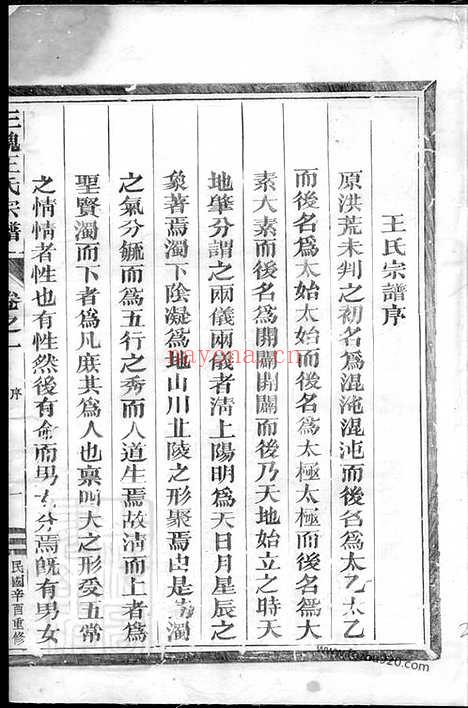 王氏宗譜序
原洪荒未判之初名爲混沌混沌而後名爲太乙太乙
而後名爲太始太始而後名爲太極太極而後名爲大
素大素而後名爲開闢開闢而後乃天地始立之時天
地肇分謂之兩儀兩儀者清上陽明爲天日月星辰之
象著焉濁下陰凝爲地山川丘陵之形聚焉由是清濁
之氣分毓而爲五行之秀而人道生焉故清而上者爲
聖賢濁而下者爲凡庶其爲人也稟大之形受五常
之情情者性也有性然後有命而男女分焉既有男女
三槐王氏宗譜
卷之一
序
一
民國辛酉重修
nayona.cn